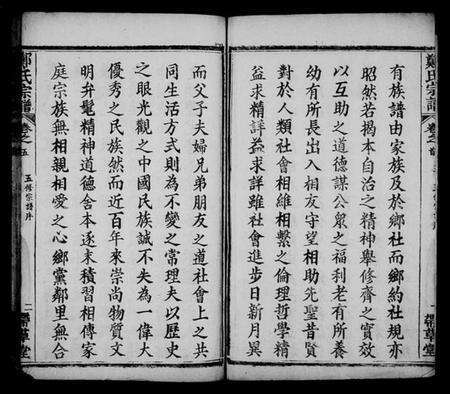 鄭氏宗譜
卷之首
有族譜由家族及於鄉社而鄉約社規亦
昭然若揭本自治之精神舉修齊之實效
以互助之道德謀公眾之福利老有所養
幼有所長出入相友守望相助先聖昔賢
對於人類社會相維相繫之倫理哲學精
益求精詳益求詳雖社會進步日新月異
而父子夫婦兄弟朋友之道社會上之共
同生活方式則為不變之常理夫以歷史
之眼光觀之中國民族誠不失為一偉大
優秀之民族然而近百年來崇尚物質文
明弁髦精神道德舍本逐末積習相傳家
庭宗族無相親相愛之心鄉黨鄰里無合
鄭氏宗譜
卷之五
五修宗譜序
二
帶草堂